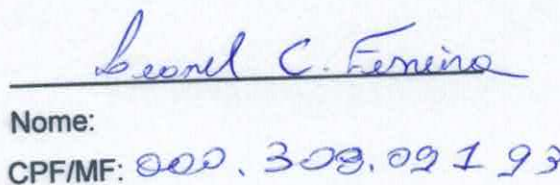 Leonel C. Ferreira
Nome:
CPF/MF: 000.308.091 93